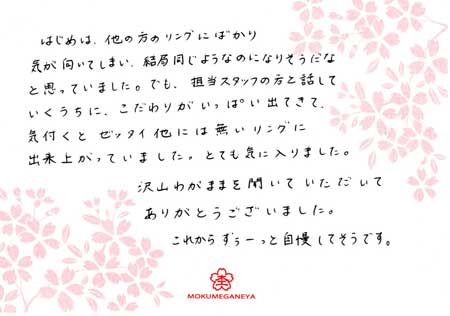 はじめは、他の方のリングにばかり
気が向いてしまい、結局同じようなのになりそうだな
と思っていました。でも、担当スタッフの方と話して
いくうちに、こだわりがいっぱい出てきて、
気付くと ゼッタイ他には無いリングに
出来上がっていました。とても気に入りました。
沢山わがままを聞いていただいて
ありがとうございました。
これから ずぅーっと自慢してそうです。
MOKUMEGANEYA